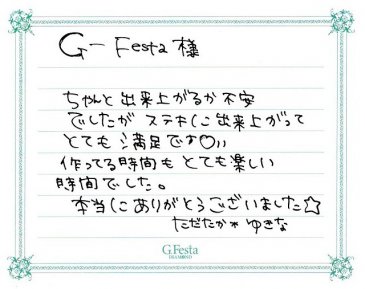 G-Festa 様
ちゃんと出来上がるか不安
でしたが ステキに出来上がって
とても満足です♡〃
作ってる時間も とても楽しい
時間でした。
本当にありがとうございました☆
ただたか＊ゆきな
G.Festa
DIAMOND